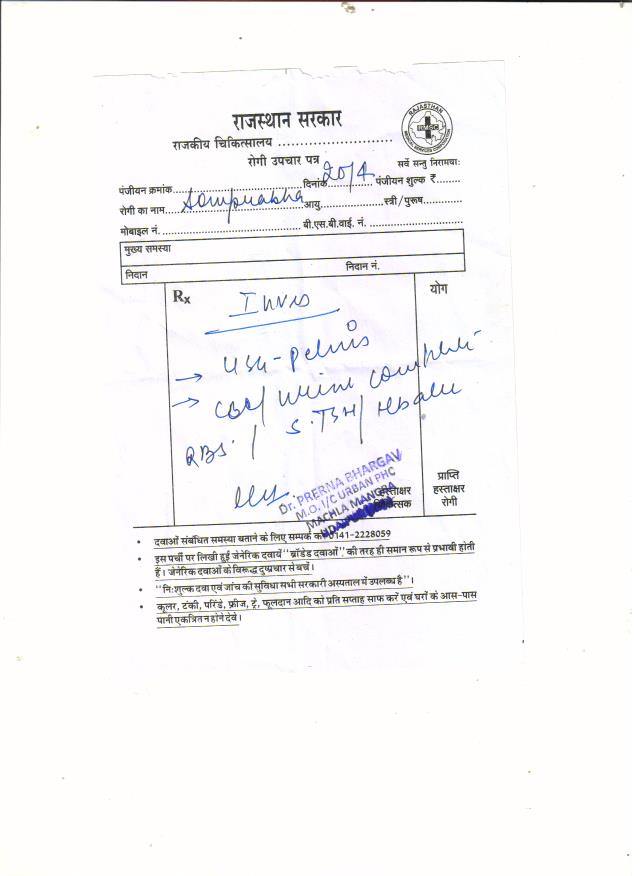 राजस्थान सरकार
RAJASTHAN
RMSC
MEDICAL SERVICES CORPORATION
राजकीय चिकित्सालय ..........................
रोगी उपचार पत्र
सर्वे सन्तु निरामयाः
पंजीयन क्रमांक.............................. दिनांक 20/4 पंजीयन शुल्क ₹.........
रोगी का नाम.............................. आयु.................. स्त्री/पुरूष............
मोबाइल नं. .............................. बी.एस.बी.वाई. नं. ..........................
मुख्य समस्या
निदान निदान नं.
Rx योग
→ USG - Pelvis
→ CBC / Urine Complete
RBS / S.TSH /
Dr. PRERNA BHARGAV
M.O. I/C URBAN PHC
MACHLA MANGRA
UDAIPUR
हस्ताक्षर
चिकित्सक
प्राप्ति
हस्ताक्षर
रोगी
• दवाओं संबंधित समस्या बताने के लिए सम्पर्क करें 0141-2228059
• इस पर्ची पर लिखी हुई जेनेरिक दवायें "ब्रॉडेड दवाओं" की तरह ही समान रूप से प्रभावी होती
हैं। जेनेरिक दवाओं के विरूद्ध दुष्प्रचार से बचें।
• "निःशुल्क दवा एवं जांच की सुविधा सभी सरकारी अस्पताल में उपलब्ध है"।
• कूलर, टंकी, परिंडे, फ्रीज, ट्रे, फूलदान आदि को प्रति सप्ताह साफ करें एवं घरों के आस-पास
पानी एकत्रित न होने देवे।